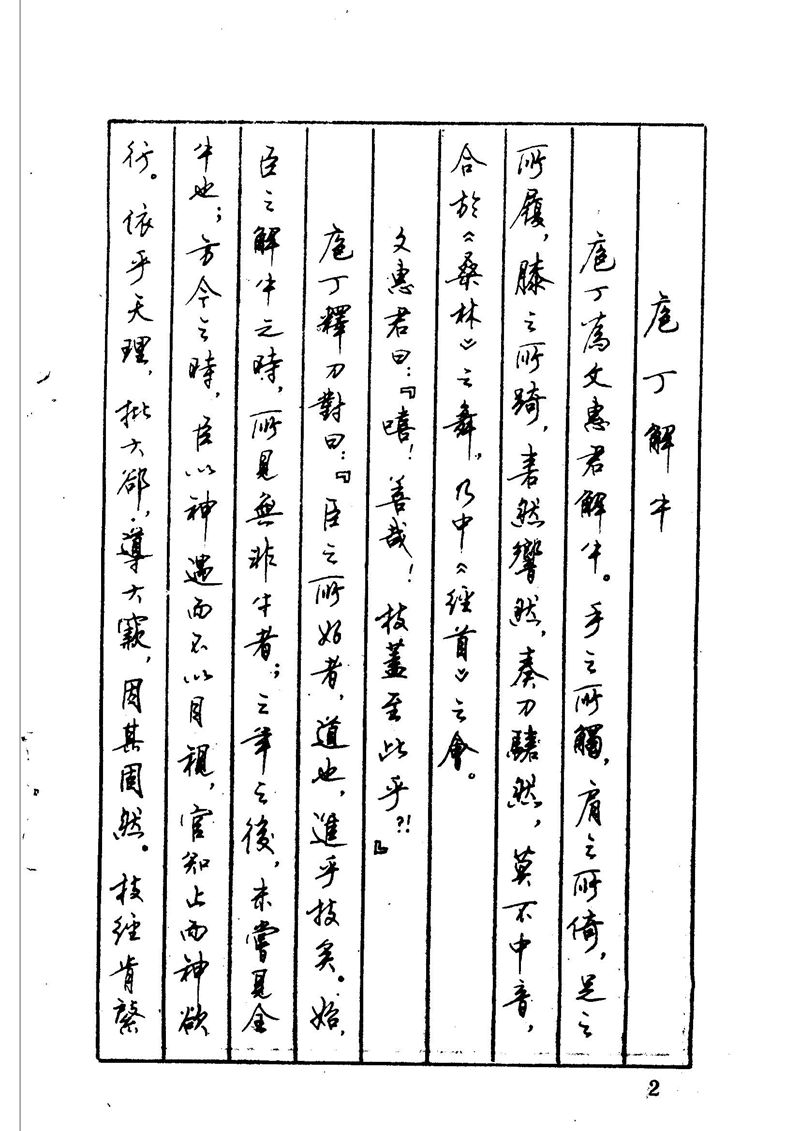 庖丁解牛
庖丁為文惠君解牛。手之所觸，肩之所倚，足之
所履，膝之所踦，砉然嚮然，奏刀騞然，莫不中音，
合於《桑林》之舞，乃中《經首》之會。
文惠君曰：『嘻！善哉！技蓋至此乎?!』
庖丁釋刀對曰：『臣之所好者，道也，進乎技矣。始，
臣之解牛之時，所見無非牛者；三年之後，未嘗見全
牛也；方今之時，臣以神遇而不以目視，官知止而神欲
行。依乎天理，批大郤，導大窾，因其固然。技經肯綮
2